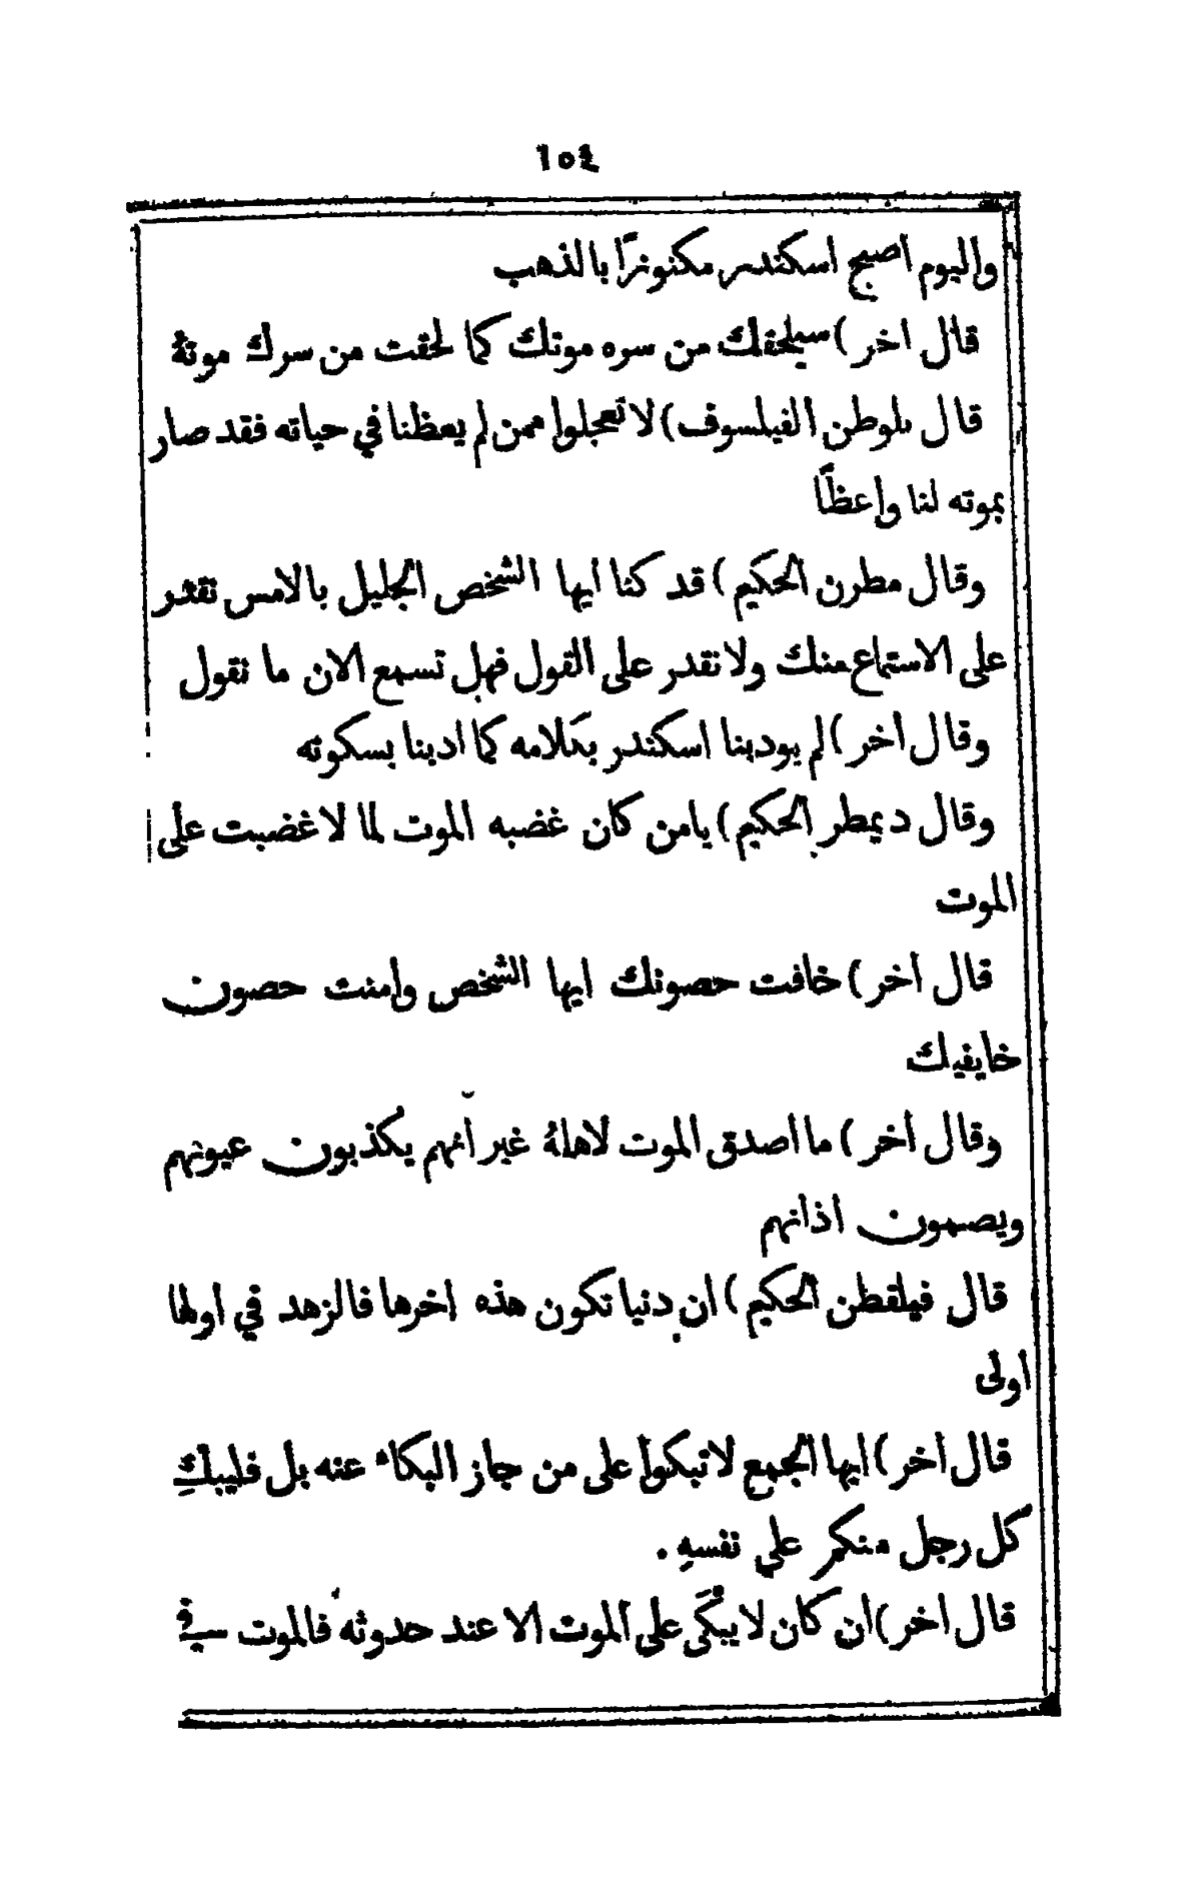 ١٥٤
واليوم اصبح اسكندر مكنوزًا بالذهب
قال اخر) سيلحقك من سره موتك كما لحقت من سرك موتهُ
قال بلوطن الفيلسوف) لا تعجلوا ممن لم يعظنا في حياته فقد صار
بموته لنا واعظًا
وقال مطرن الحكيم) قد كنا ايها الشخص الجليل بالامس نقدر
على الاستماع منك ولا نقدر على القول فهل تسمع الان ما نقول
وقال اخر) لم يودبنا اسكندر بكلامه كما ادبنا بسكوته
وقال ديمطر الحكيم) يا من كان غضبه الموت لما لا غضبت على
الموت
قال اخر) خافت حصونك ايها الشخص وامنت حصون
خايفيك
وقال اخر) ما اصدق الموت لاهلهُ غير انهم يكذبون عيونهم
ويصمون اذانهم
قال فيلقطن الحكيم) ان دنيا تكون هذه اخرها فالزهد في اولها
اولى
قال اخر) ايها الجمع لا تبكوا على من جاز البكاء عنه بل فليبكِ
كل رجل منكم على نفسهِ .
قال اخر) ان كان لا يبُكَى على الموت الا عند حدوثه فالموت سيفـ